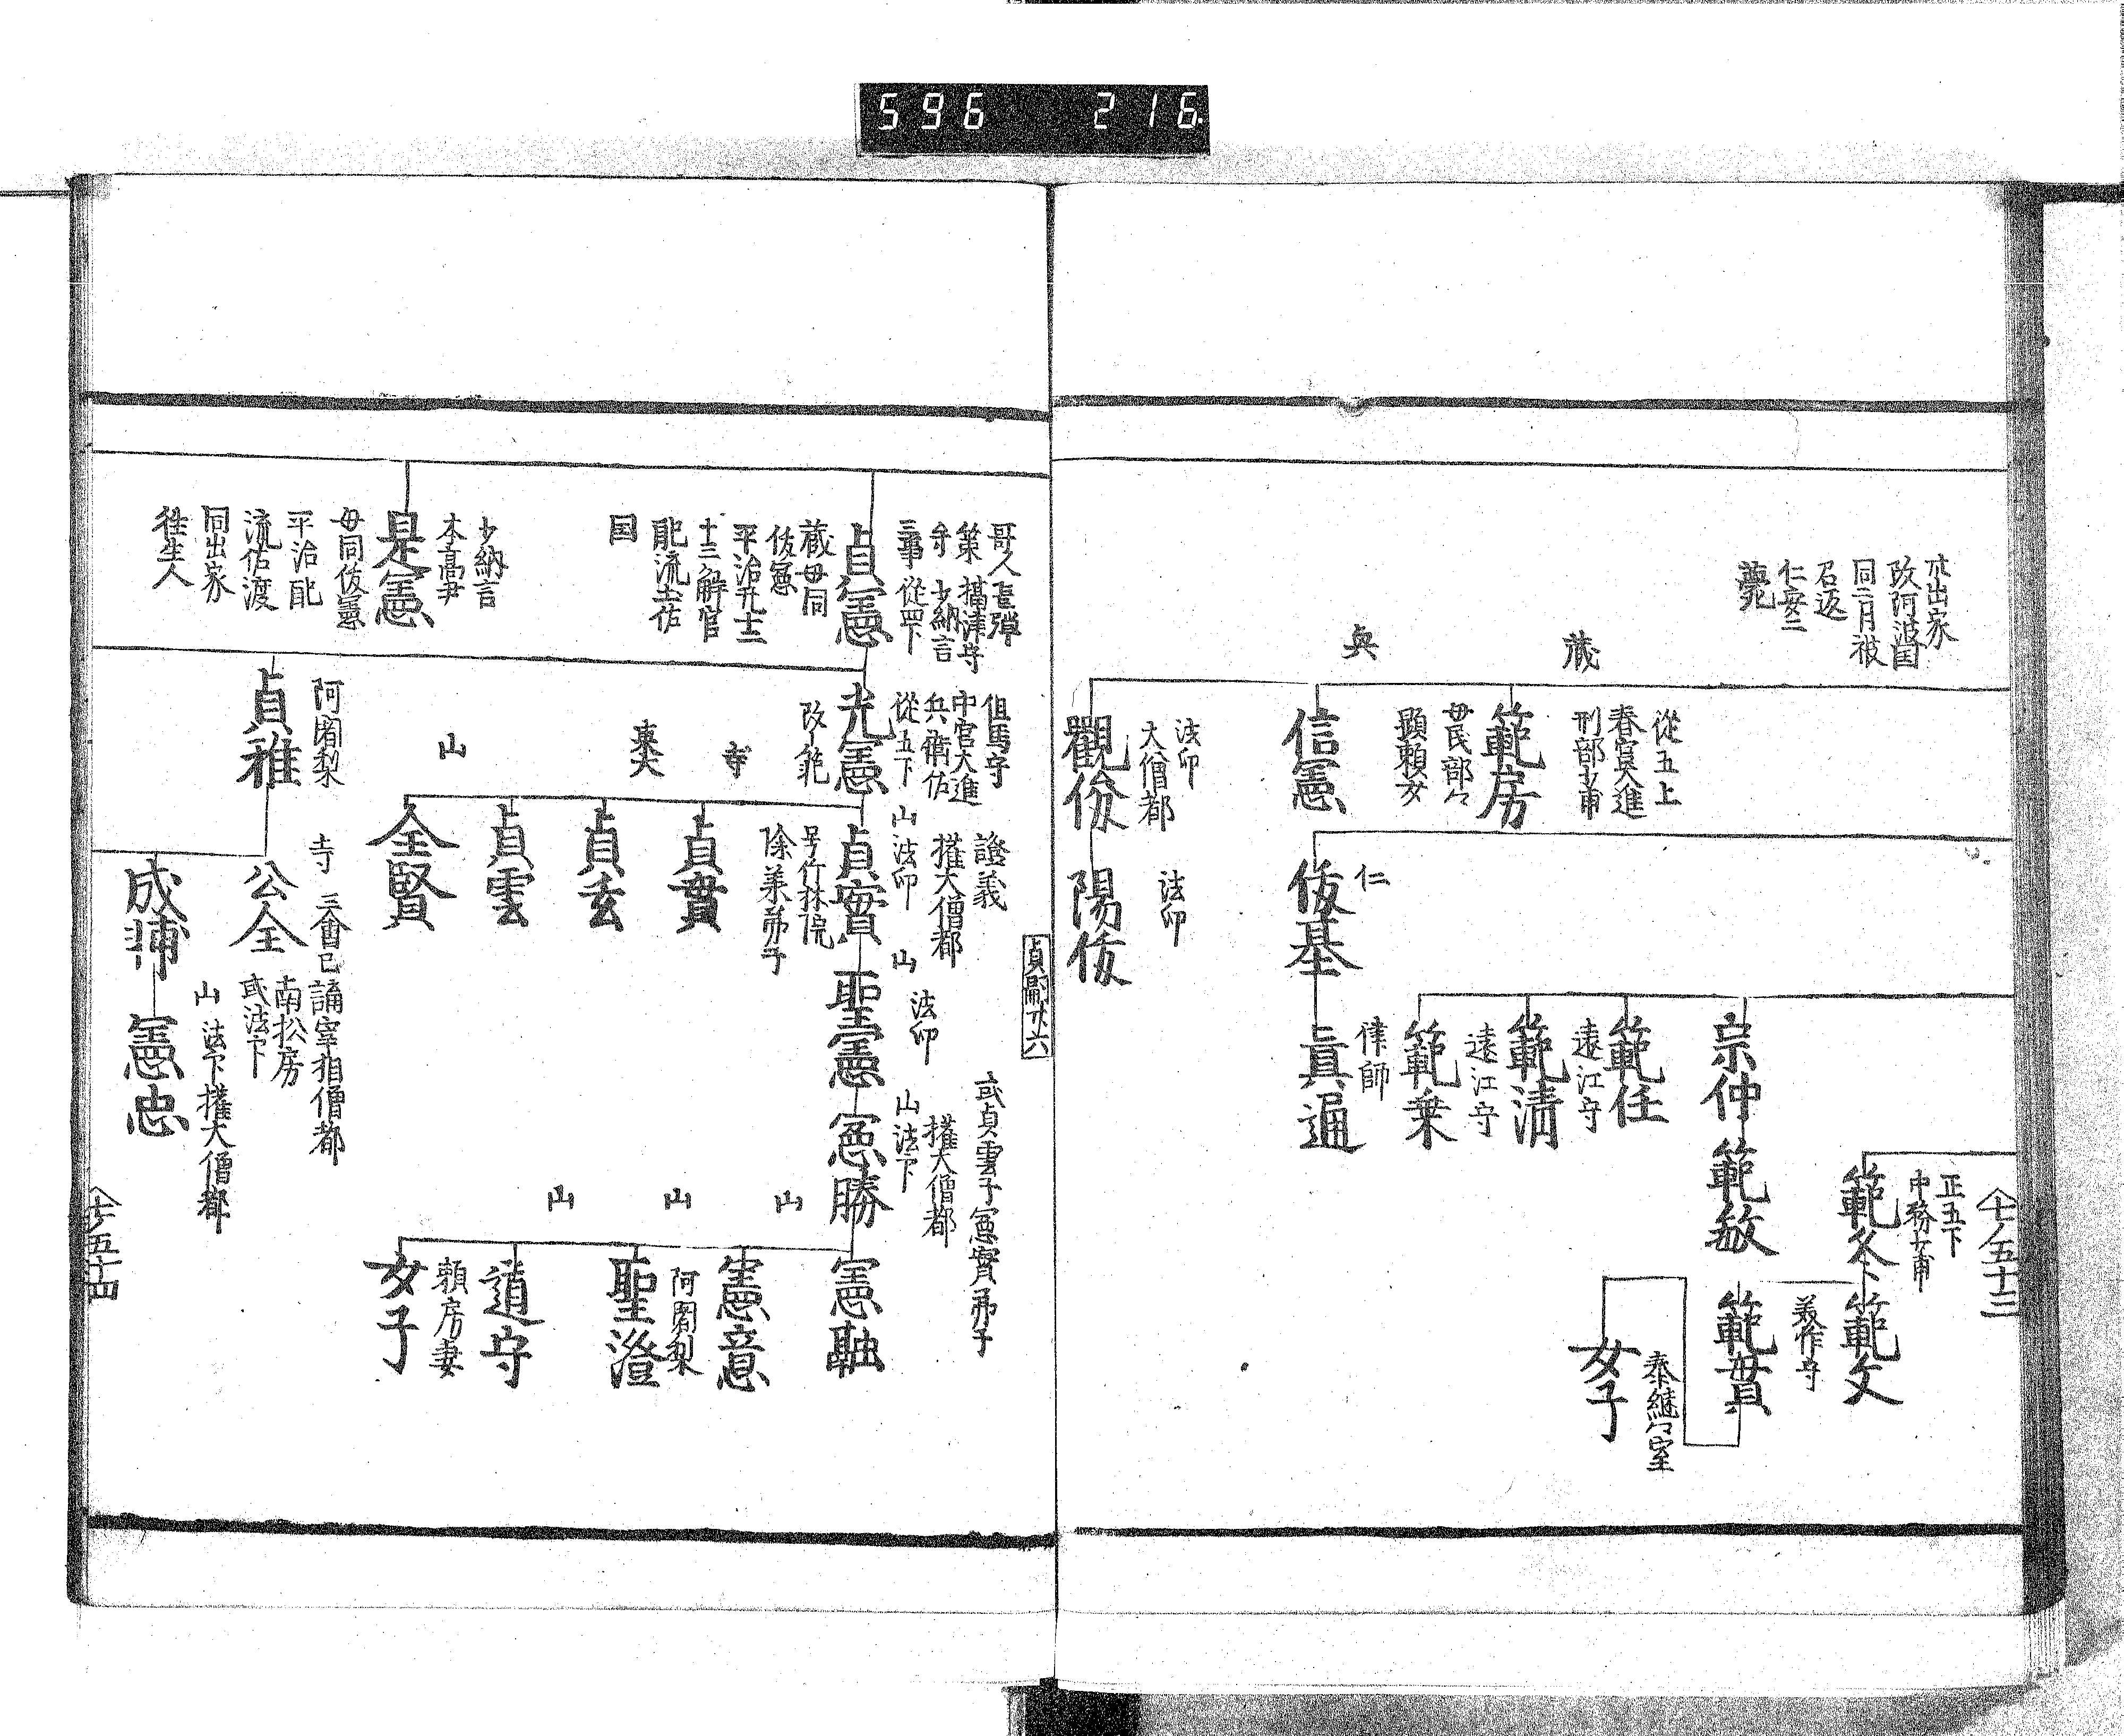 596 216.
出家
改阿波国
同二月被
召返
仁安二
薨
蔵
從五上
春宮大進
刑部少甫
範房
母民部々
顕頼女
興
信憲
法印
大僧都
觀俊
仁
俊基
法印
陽俊
宗仲
範任
遠江守
範清
遠江守
範乗
律師
眞遍
七ノ五十三
正五下
中務少甫
範冬
範敏
範文
美作守
範貫
泰継々室
女子
貞嗣廿六
哥人 直弾
策 攝津守
守 少納言
三事 從四下
貞憲
蔵 母同
俊憲
平治元十二
十三解官
配流土佐
国
少納言
本高尹
是憲
母同俊憲
平治配
流佐渡
同出家
往生人
但馬守
中宮大進
兵衛佐
從五下
光憲
改範
寺
東大
山
阿闍梨
貞雅
證義
權大僧都
山 法印
貞實
号竹林院
貞實
貞玄
貞雲
全賢
寺 三會已講宰相僧都
公全
南松房
或法下
成
山 法下權大僧都
憲忠
山 法印
聖憲
或貞雲子憲實弟子
權大僧都
山 法下
憲勝
憲融
山
憲意
山
阿闍梨
聖澄
山
道守
頼房妻
女子
七ノ五十四